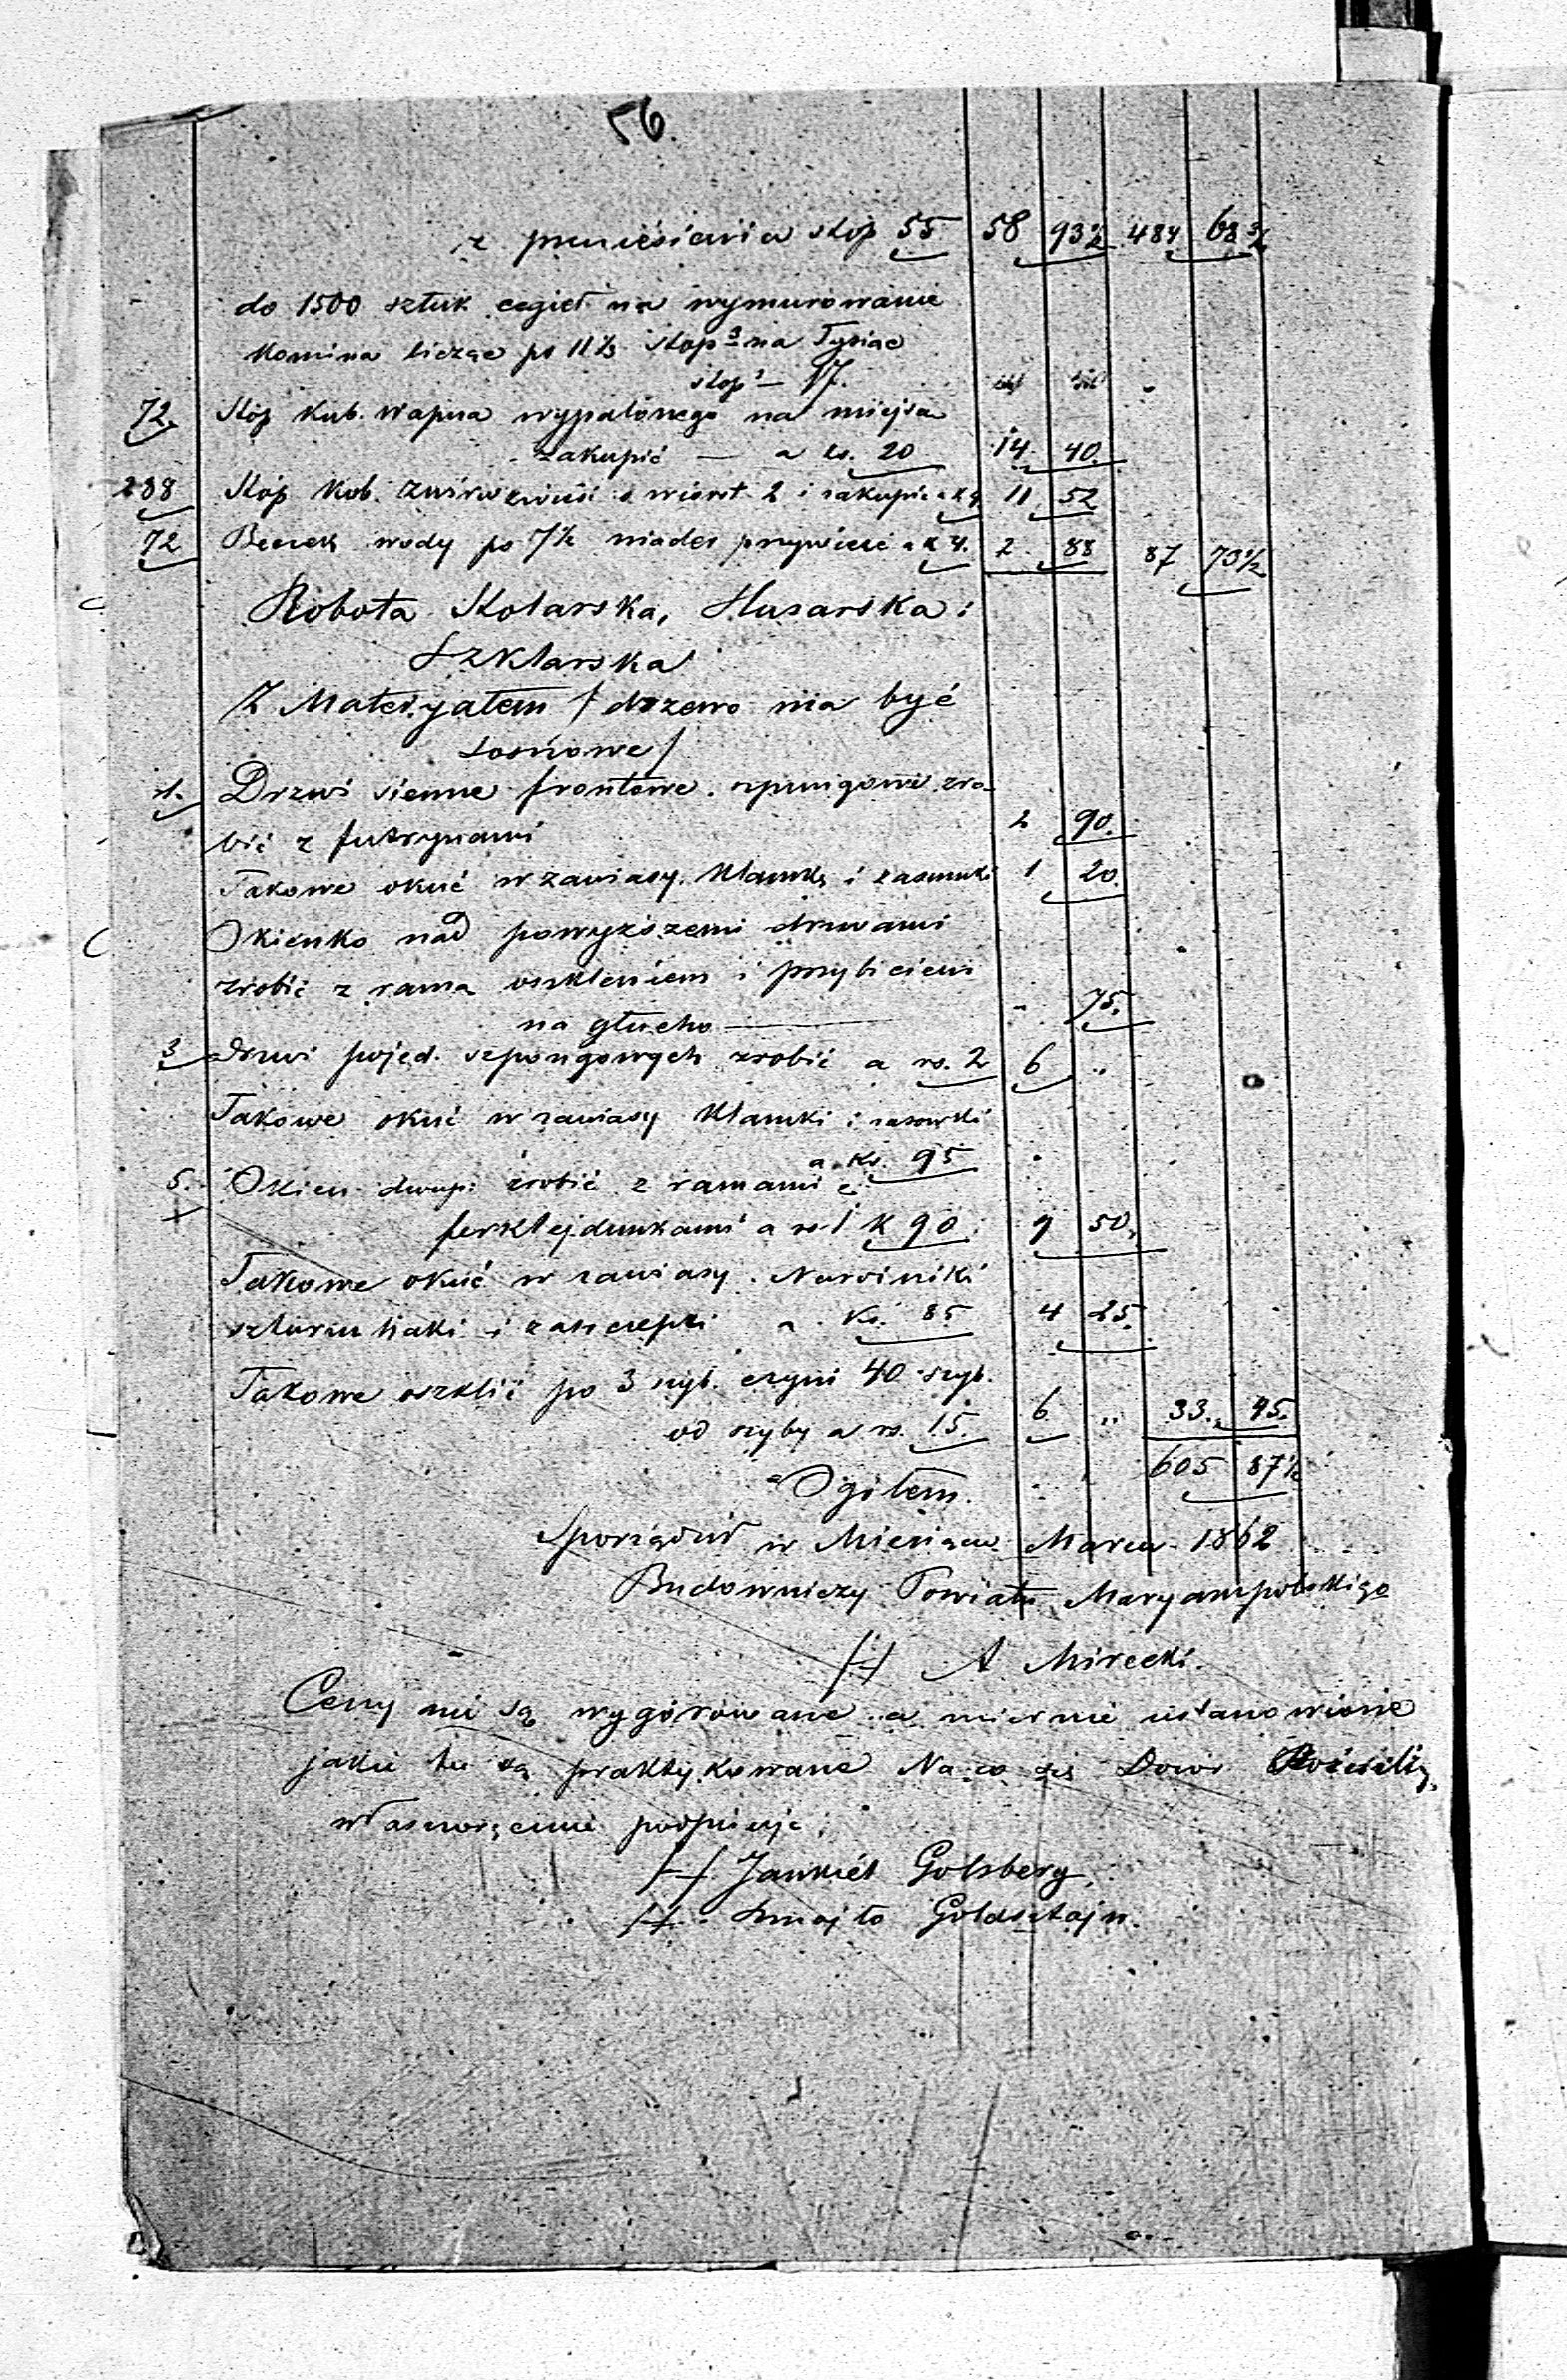 56.
z przeniesienia stop 55 58 93½ 484 68¾
do 1500 sztuk cegieł na wymurowanie
Komina licząc po 11⅓ stop³ na Tysiąc
stop³ — 17.
72. Stóp kub. wapna wypalonego na miejsce
zakupić — a ks. 20 14. 40.
288 Stóp kub. żwiru zwieść z wiorst 2 i zakupić a k 4 11 52
72 Beczek wody po 7½ wiader przywieść a k 4. 2. 88 87 73½
Robota Stolarska, Slusarska i
Szklarska
Z Materyałem / drzewo ma być
sosnowe /
1. Drzwi sienne frontowe szpungowe zro-
bić z futrynami 2 90.
Takowe okuć w zawiasy, klamkę i zasuwki 1 20.
Okienko nad powyższemi drzwiami
zrobić z ramą oszkleniem i przybiciem
na głucho — - 75.
3 Drzwi pojed. szpongowych zrobić a rs. 2 6 "
Takowe okuć w zawiasy klamki i zasowki
a ks. 95
5. Okien dwup: zrobić z ramami i
ferklejdunkami a rs 1 k 90. 9 50.
Takowe okuć w zawiasy. Narożniki
szturm haki i zaszczepki a ks. 85 4 25.
Takowe oszklić po 3 szyb. czyni 40 szyb.
od szyby a rs. 15. 6 " 33. 45.
Ogółem. 605 87½
Sporządził w Miesiącu Marcu 1862
Budowniczy Powiatu Maryampolskigo
/-/ A Mirecki.
Ceny nie są wygórowane a miernie ustanowione
jakie tu są praktykowane Na co się Dozór
własnoręcznie podpisuje
/-/ Jankiel Golsberg.
/-/ Smajto Goldsztajn.